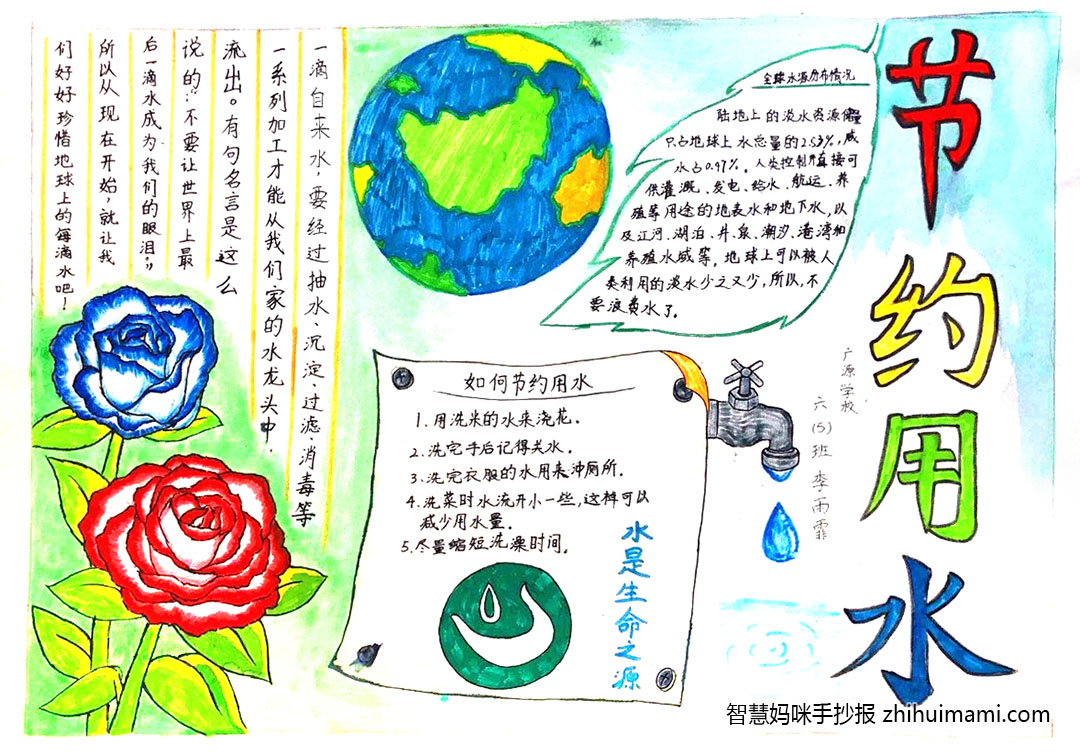 节约用水
一滴自来水，要经过抽水、沉淀、过滤、消毒等
一系列加工才能从我们家的水龙头中
流出。有句名言是这么
说的：“不要让世界上最
后一滴水成为我们的眼泪”，
所以从现在开始，就让我
们好好珍惜地球上的每滴水吧！
全球水源分布情况
陆地上的淡水资源储量
只占地球上水总量的2.53%，咸
水占0.97%。人类控制并直接可
供灌溉、发电、给水、航运、养
殖等用途的地表水和地下水，以
及江河、湖泊、井、泉、潮汐、港湾和
养殖水域等，地球上可以被人
类利用的淡水少之又少，所以，不
要浪费水了。
如何节约用水
1.用洗米的水来浇花。
2.洗完手后记得关水。
3.洗完衣服的水用来冲厕所。
4.洗菜时水流开小一些，这样可以
减少用水量。
5.尽量缩短洗澡时间。
水是生命之源
广源学校
六(5)班 李雨霏
智慧妈咪手抄报 zhihuimami.com